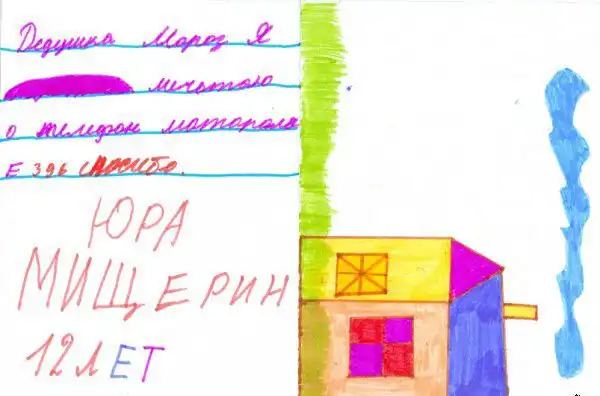 Дедушка Мороз Я
мечатаю
о телефон маторола
Е 396 спосибо.
ЮРА
МИЩЕРИН
12 ЛЕТ